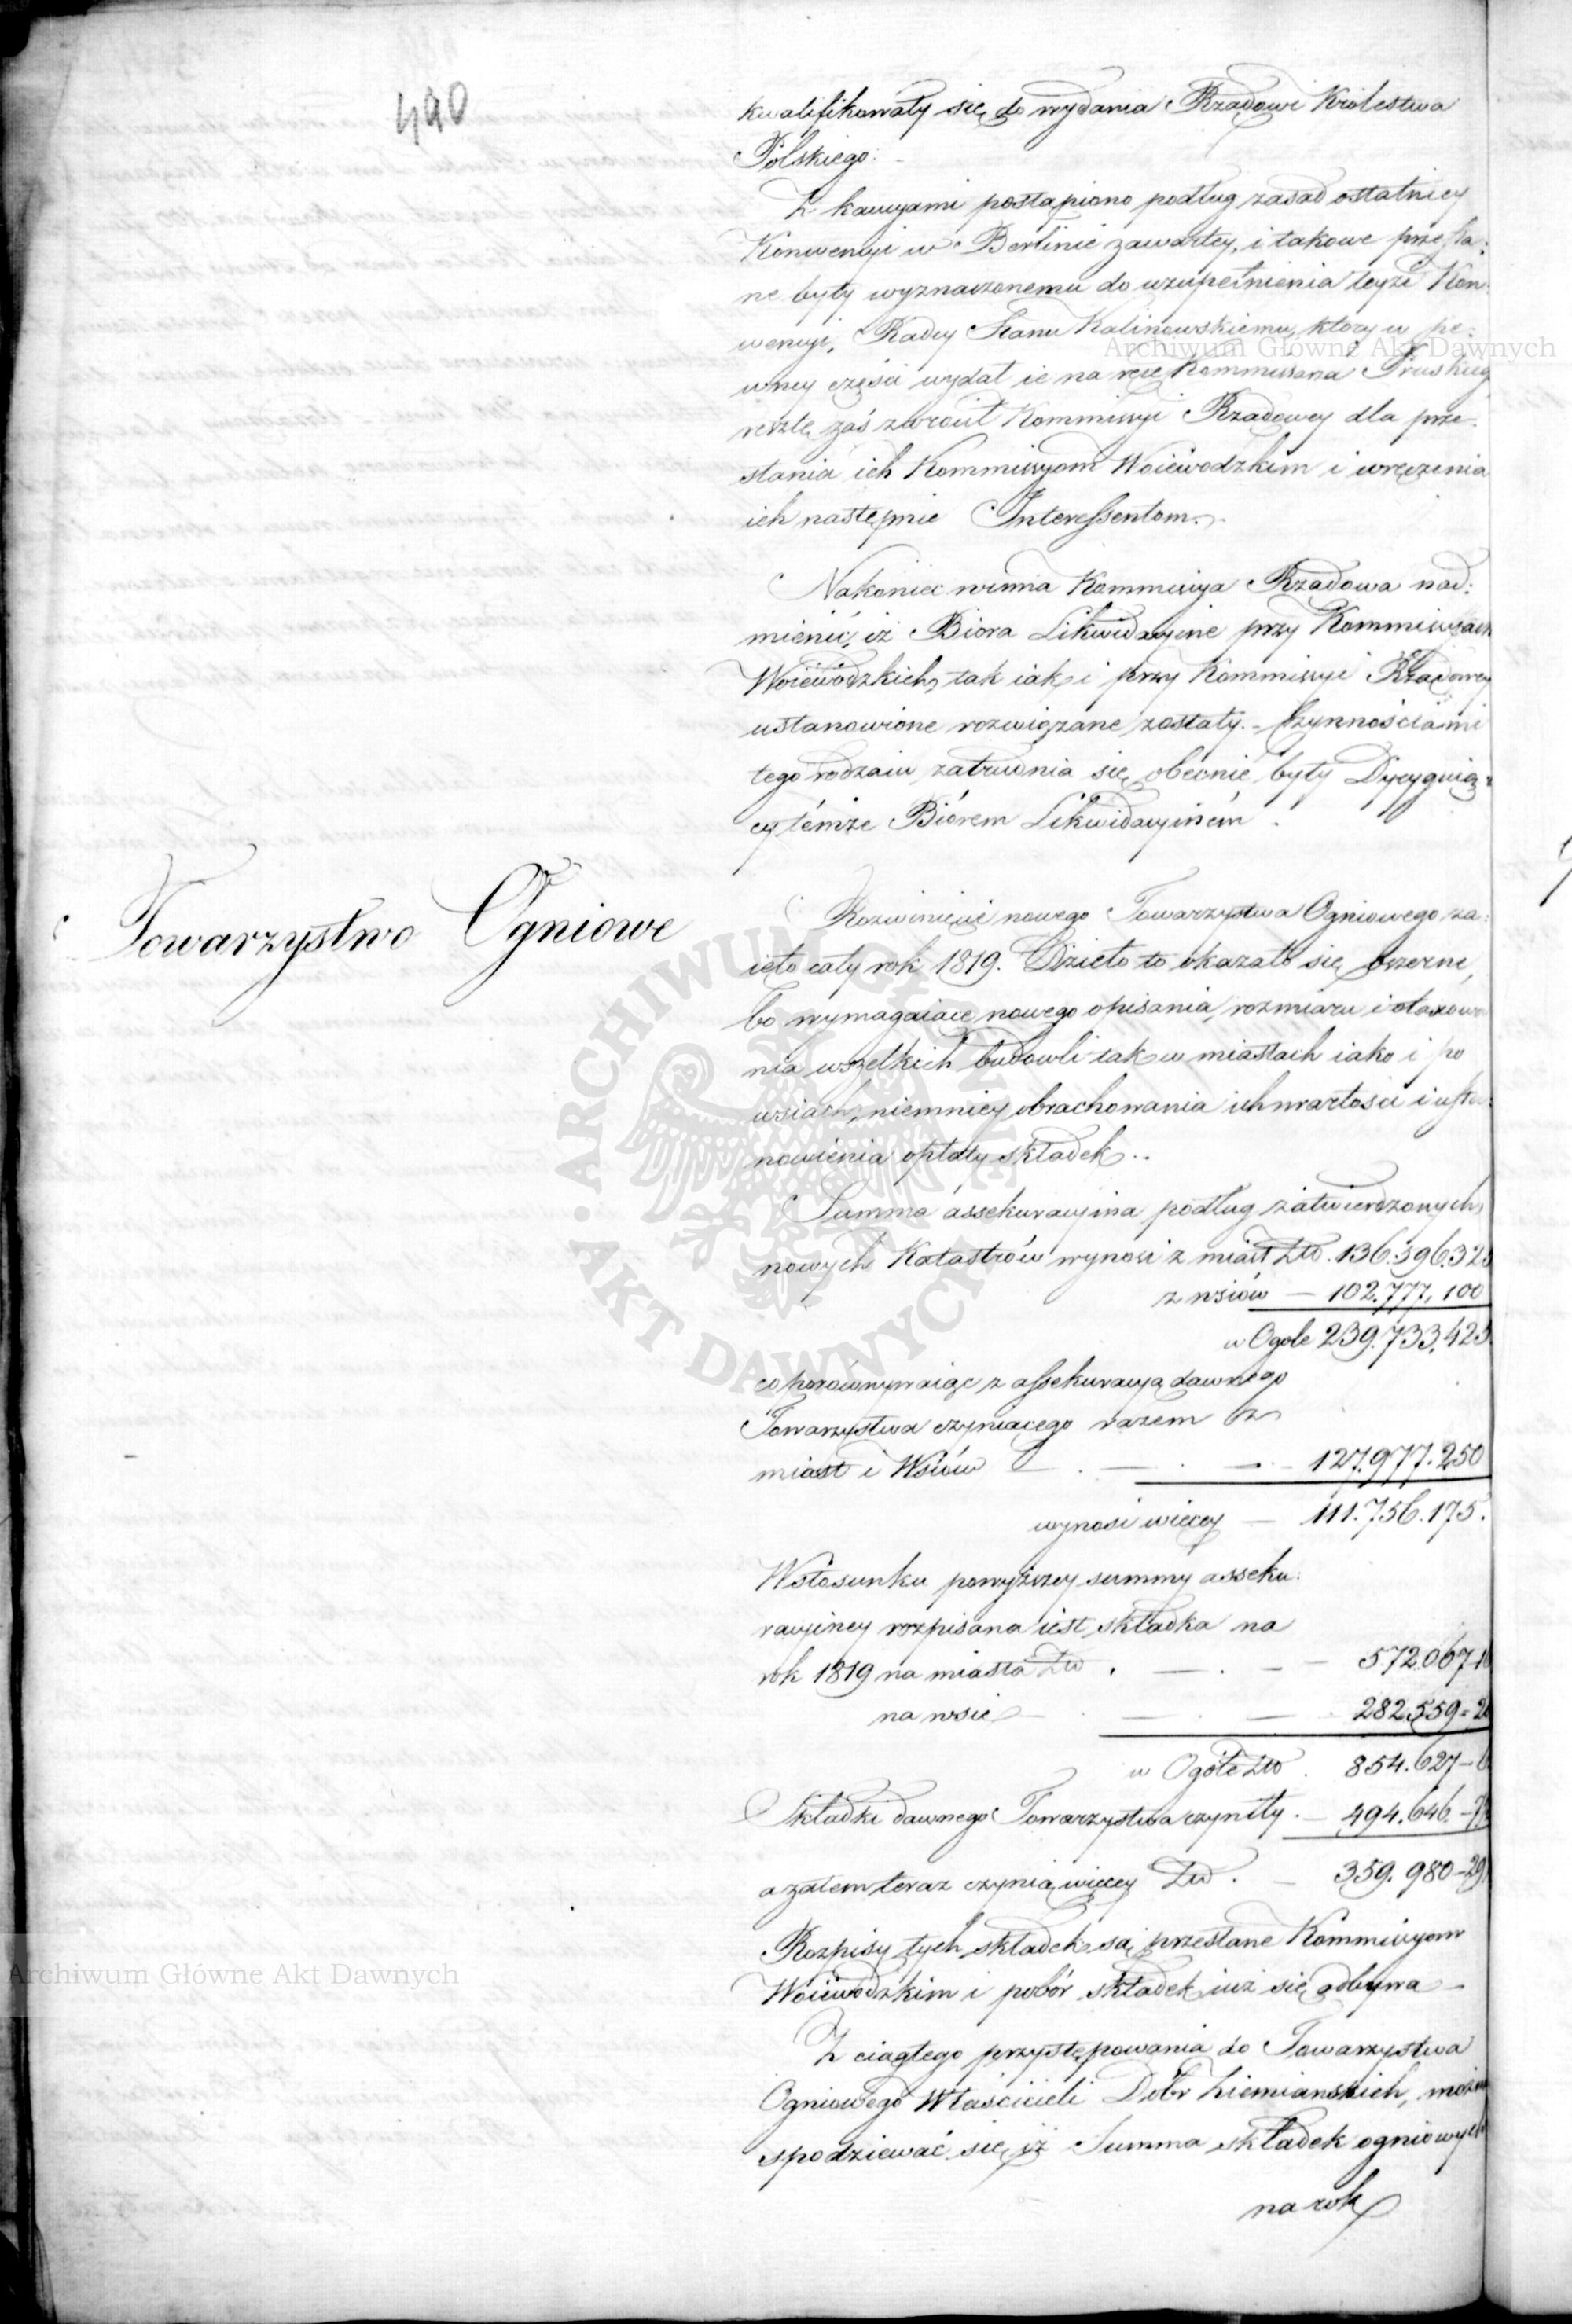 490
kwalifikowały się do wydania Rządowi Królestwa
Polskiego.
Z kaucyami postąpiono podług zasad ostatniey
Konwencyi w Berlinie zawartey, i takowe przesła-
ne były wyznaczonemu do uzupełnienia teyże Kon-
wencyi, Radcy Stanu Kalinowskiemu, który w pe-
wney części wydał ie na ręce Kommissarza Pruskiego
resztę zaś zwrócił Kommissyi Rządowey dla prze-
słania ich Kommissyom Woiewodzkim i wręczenia
ich następnie Interessentom.
Nakoniec winna Kommissya Rządowa nad-
mienić, iż Biora Likwidacyine przy Kommissyach
Woiewódzkich, tak iak i przy Kommissyi Rządowey
ustanowione rozwiązane zostały. - Czynnościami
tego rodzaiu zatrudnia się obecnie były Dyryguią-
cy témże Biórem Likwidacyiném.
Towarzystwo Ogniowe
Rozwinięcie nowego Towarzystwa Ogniowego za-
ięło cały rok 1819. Dzieło to okazało się obszerne,
bo wymagaiące nowego opisania, rozmiaru i otaxowa
nia wszelkich budowli tak w miastach iako i po
wsiach, niemniey obrachowania ich wartości i usta-
nowienia opłaty składek..
Summa assekuracyina podług zatwierdzonych
nowych Katastrów wynosi z miast Złł. 136.596.325
z wsiów — 102.777,100
w Ogole 239.733,425
co porównywaiąc z assekuracyą dawnego
Towarzystwa czyniącego razem z
miast i Wsiów — . — . — 127.977.250
wynosi więcey — 111.756.175.
W stosunku powyższey summy asseku-
racyiney rozpisana iest składka na
rok 1819 na miasta Złł . — . — 572.067-
na wsie — . — . — 282.559-
w Ogóle Złł . 854.627-
Składki dawnego Towarzystwa czyniły . — 494.646.-
a zatem teraz czynią więcey Złł . — 359.980-29
Rozpisy tych składek są przesłane Kommissyom
Woiewódzkim i pobór składek iuż się odbywa —
Z ciągłego przystępowania do Towarzystwa
Ogniowego Właścicieli Dóbr Ziemianskich, można
spodziewać się, iż Summa składek ogniowych
na rok
Archiwum Główne Akt Dawnych
Archiwum Główne Akt Dawnych
ARCHIWUM GŁÓWNE · AKT DAWNYCH ·